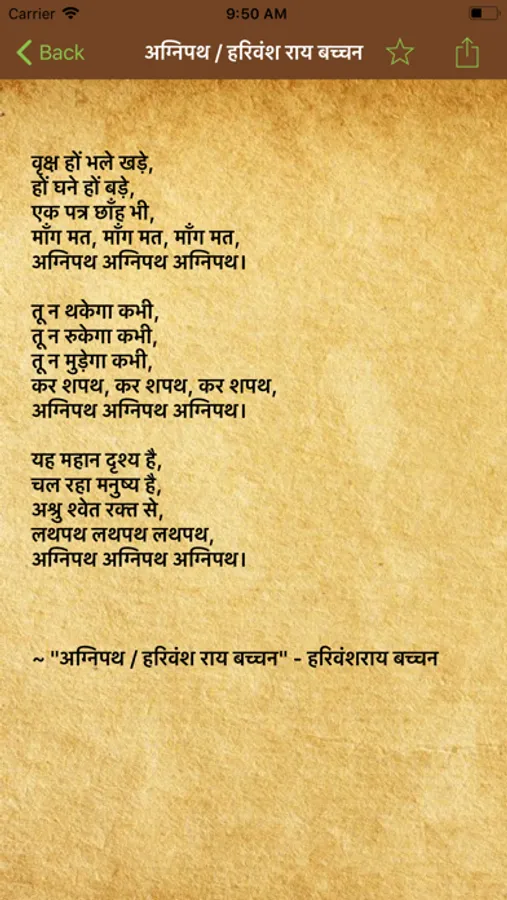 Carrier 9:50 AM
Back अग्निपथ / हरिवंश राय बच्चन
वृक्ष हों भले खड़े,
हों घने हों बड़े,
एक पत्र छाँह भी,
माँग मत, माँग मत, माँग मत,
अग्निपथ अग्निपथ अग्निपथ।
तू न थकेगा कभी,
तू न रुकेगा कभी,
तू न मुड़ेगा कभी,
कर शपथ, कर शपथ, कर शपथ,
अग्निपथ अग्निपथ अग्निपथ।
यह महान दृश्य है,
चल रहा मनुष्य है,
अश्रु श्वेत रक्त से,
लथपथ लथपथ लथपथ,
अग्निपथ अग्निपथ अग्निपथ।
~ "अग्निपथ / हरिवंश राय बच्चन" - हरिवंशराय बच्चन